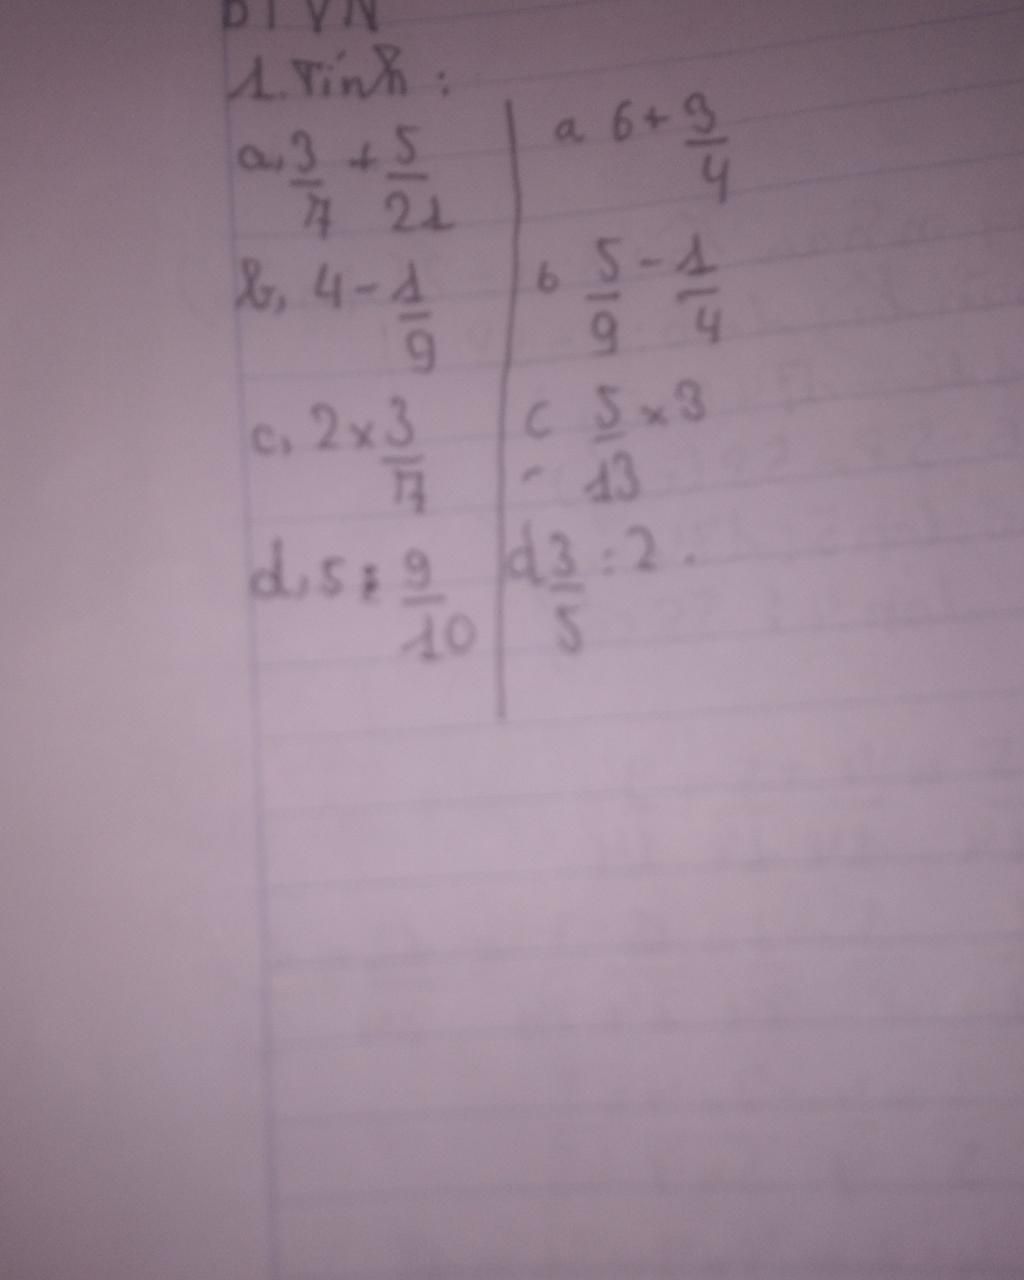 BTVN
1. Tính :
a, 3/7 + 5/21
b, 4 - 1/9
c, 2 x 3/7
d, 5 : 9/10
a 6 + 3/4
b 5/9 - 1/4
c 5/13 x 3
d 3/5 : 2 .